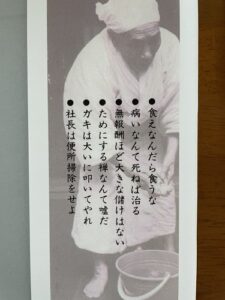 ●食えなんだら食うな
●病いなんて死ねば治る
●無報酬ほど大きな儲けはない
●ためにする禅なんて嘘だ
●ガキは大いに叩いてやれ
●社長は便所掃除をせよ